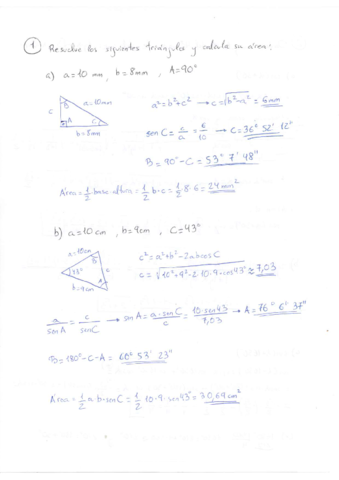 1 Resuelve los siguientes triángulos y calcula su área:
a) a=10 mm, b=8mm, A=90º
a=10mm
B
c
A
C
b=8mm
a²=b²+c² → c=√b²-a² = 6mm
sen C= c/a = 6/10 → C=36º 52' 12"
B=90º-C=53º 7' 48"
Área=1/2·base·altura=1/2 b·c=1/2·8·6=24mm²
b) a=10cm, b=9cm, C=43º
a=10cm
B
c
43º
A
b=9cm
c²=a²+b²-2abcosC
c=√10²+9²-2·10·9·cos43º ≈ 7,03
a/senA = c/senC → senA= a·senC/c = 10·sen43/7,03 → A=76º 6' 37"
B=180º-C-A=60º 53' 23"
Área=1/2 a·b·senC=1/2 10·9·sen43º=30,69cm²